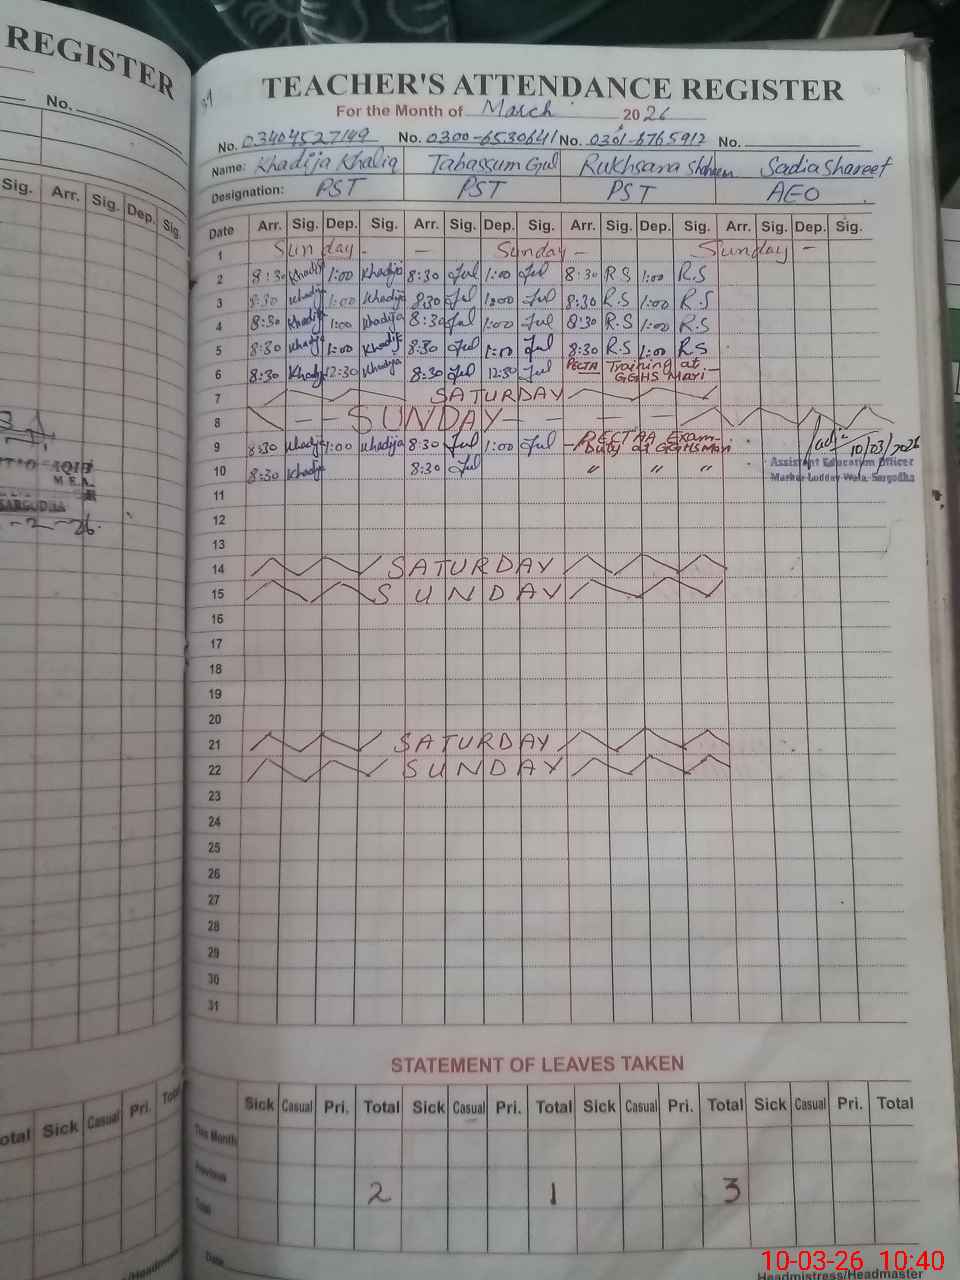 REGISTER
No.
Sig. Arr. Sig. Dep. Sig.
TEACHER'S ATTENDANCE REGISTER
For the Month of March 2026
No. 03404527149 No. 0300-6530641 No. 0301-6765912 No.
Name: Khadija Khaliq Tabassum Gul Rukhsana Shaheen Sadia Shareef
Designation: PST PST PST AEO
Date Arr. Sig. Dep. Sig. Arr. Sig. Dep. Sig. Arr. Sig. Dep. Sig. Arr. Sig. Dep. Sig.
1 Sunday - - Sunday - Sunday -
2 8:30 Khadija 1:00 Khadija 8:30 Gul 1:00 Gul 8:30 R.S 1:00 R.S
3 8:30 Khadija 1:00 Khadija 8:30 Gul 1:00 Gul 8:30 R.S 1:00 R.S
4 8:30 Khadija 1:00 Khadija 8:30 Gul 1:00 Gul 8:30 R.S 1:00 R.S
5 8:30 Khadija 1:00 Khadija 8:30 Gul 1:00 Gul 8:30 R.S 1:00 RS
6 8:30 Khadija 12:30 Khadija 8:30 Gul 12:30 Gul PECTA Training at
GGHS Mari
7 SATURDAY
8 - - SUNDAY - - - -
9 8:30 Khadija 1:00 Khadija 8:30 Gul 1:00 Gul - PECTAA Exam
Duty at GGHS Mari
10/03/2026
Assistant Education Officer
Markaz Ludday Wala, Sargodha
10 8:30 Khadija 8:30 Gul " " "
11
12
13
14 SATURDAY
15 SUNDAY
16
17
18
19
20
21 SATURDAY
22 SUNDAY
23
24
25
26
27
28
29
30
31
M.E.A.
SARGODHA
-2-26
STATEMENT OF LEAVES TAKEN
Sick Casual Pri. Total Sick Casual Pri. Total Sick Casual Pri. Total Sick Casual Pri. Total
This Month
Previous
Total 2 1 3
Total Sick Casual Pri. Total
Date
Headmistress/Headmaster
10-03-26 10:40